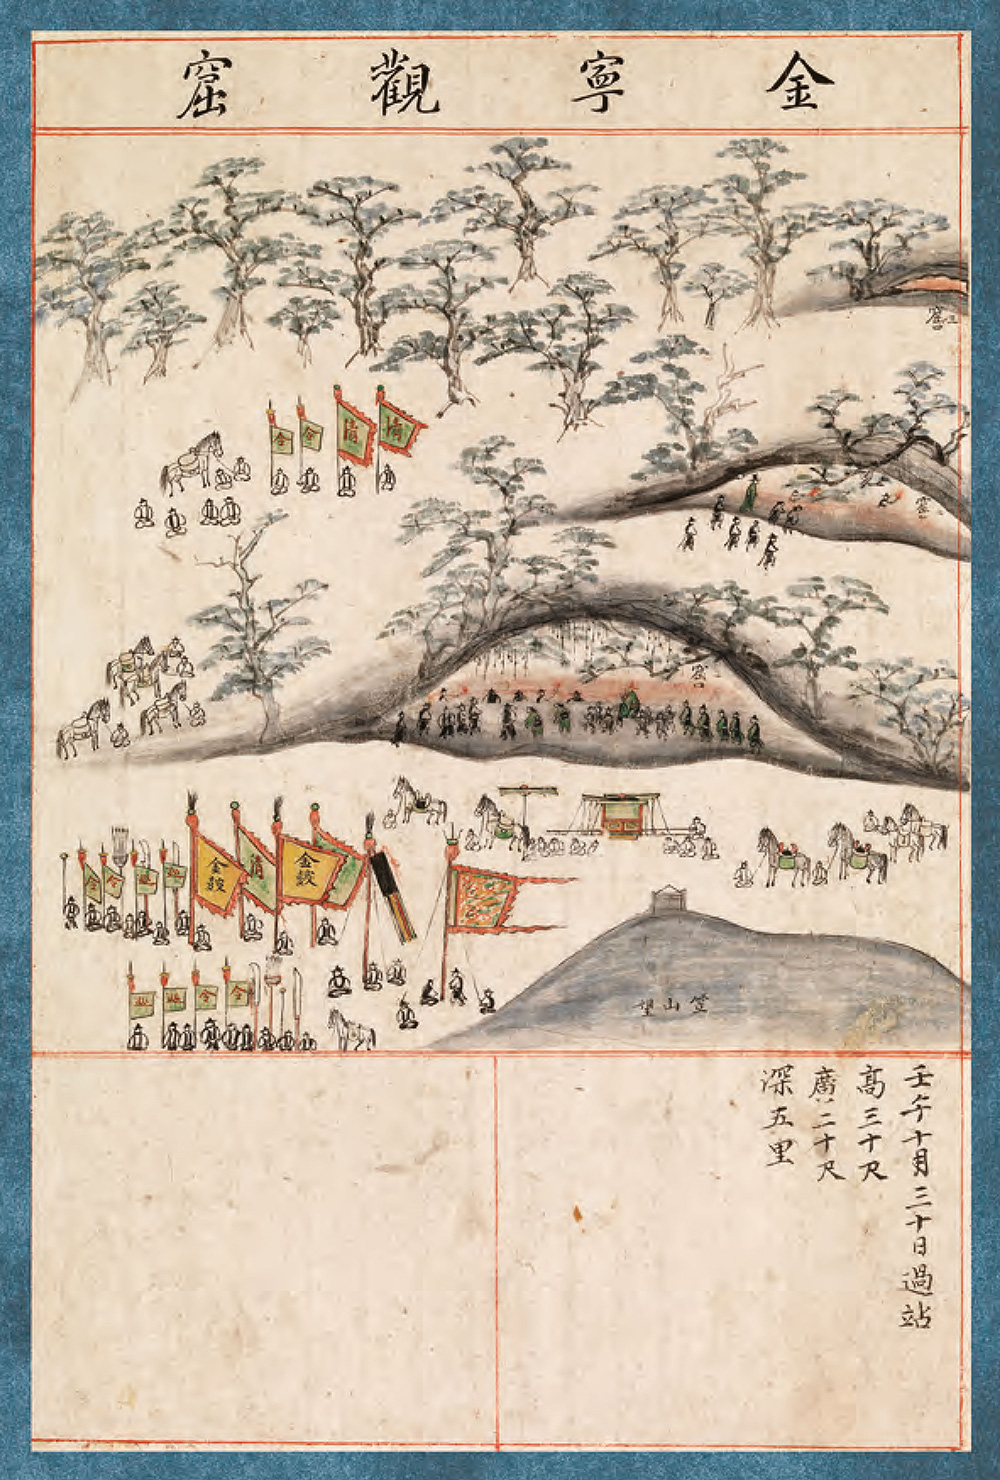 金寧觀窟
窟
令
令
清
清
窟
窟
令
令
金鼓
清
金鼓
令
令
笠山望
壬午十月三十日過站
高三十尺
廣二十尺
深五里